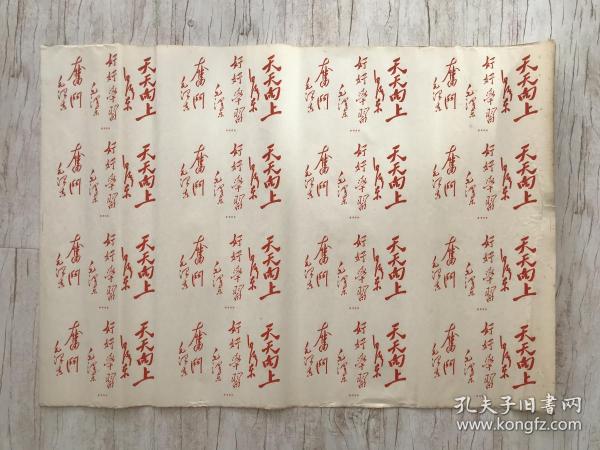 天天向上
毛泽东
好好学習
毛泽东
奮鬥
毛泽东
天天向上
毛泽东
好好学習
毛泽东
奮鬥
毛泽东
天天向上
毛泽东
好好学習
毛泽东
奮鬥
毛泽东
天天向上
毛泽东
好好学習
毛泽东
奮鬥
毛泽东
天天向上
毛泽东
好好学習
毛泽东
奮鬥
毛泽东
天天向上
毛泽东
好好学習
毛泽东
奮鬥
毛泽东
天天向上
毛泽东
好好学習
毛泽东
奮鬥
毛泽东
天天向上
毛泽东
好好学習
毛泽东
奮鬥
毛泽东
天天向上
毛泽东
好好学習
毛泽东
奮鬥
毛泽东
天天向上
毛泽东
好好学習
毛泽东
奮鬥
毛泽东
天天向上
毛泽东
好好学習
毛泽东
奮鬥
毛泽东
天天向上
毛泽东
好好学習
毛泽东
奮鬥
毛泽东
天天向上
毛泽东
好好学習
毛泽东
奮鬥
毛泽东
天天向上
毛泽东
好好学習
毛泽东
奮鬥
毛泽东
天天向上
毛泽东
好好学習
毛泽东
奮鬥
毛泽东
天天向上
毛泽东
好好学習
毛泽东
奮鬥
毛泽东
孔夫子旧书网
www.kongfz.com